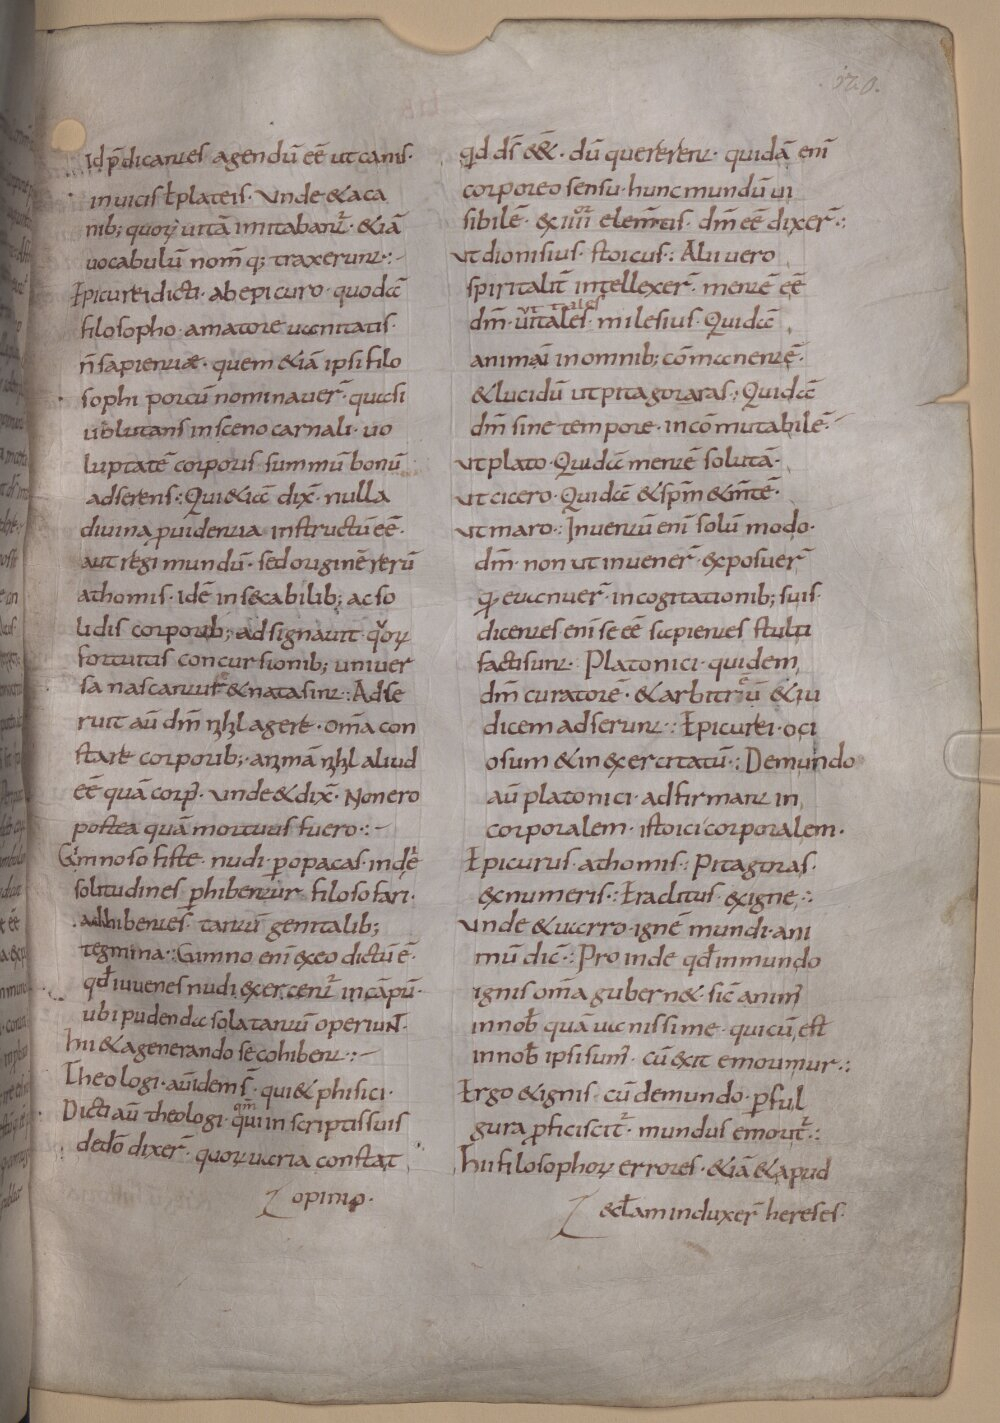 120.
id p̄dicantes agendū eē ut canis·
in uicis ł plateis· Unde & a ca
nib; quorꝝ uitā imitabant̄· & iā
uocabulū nom̄q; traxerunt:·
Epicurei dicti· ab epicuro· quodā
filosopho· amatore uanitatis·
ñ sapientiæ· quem & iā ipsi filo
sophi porcū nominauer̄· quasi
uolutans in sceno carnali· uo
luptatē corporis summū bonū
adserens:· Qui & iā dix̄· nulla
diuina puidentia instructū eē·
aut regi mundū· sed originē rerū
athomis· idē insecabilib; ac so
lidis corporib; adsignauit· qꝝ
fortuitis concursionib; uniuer
sa nascantur & nata sint:· Adse
ruit aū dm̄ nhl agere· oma con
stare corporib;· animā nhl aliud
eē quā corp'· unde & dix̄· Non ero
postea quā mortuus fuero:·
Gimnosofiste· nudi· p opacas indē
solitudines phibentur filosofari·
adhibentes tantū genitalib;
tegmina:· Gimno enī ex eo dictū ē·
qđ iuuenes nudi exercent̄ in cāpū·
ubi pudenda sola tantū operiunt·
hii & a generando se cohibent:·
Theologi· aūidem s̄· qui & phisici·
Dicti aū theologi· qm̄ in scriptis suis
de dō dixer̄· quorꝝ uaria constat
opinio·
qd ds̄ ēēt· dū quererent· quidā enī
corporeo sensu· hunc mundū ui
sibilē· ex iiii elem̄tis· dm̄ eē dixer̄:·
ut dionisius· stoicus:· Alii uero
spiritalit̄ intellexer̄· mentē eē
dm̄· ut tales milesius· Quidā
animā in omnib; cōmanentē·
& lucidū ut pitagoraras:· Quidā
dm̄ sine tempore· incōmutabilē·
ut plato· Quidā mentē solutā·
ut cicero· Quidā & spm̄ & m̄tē·
ut maro:· Inuentū enī solū modo·
dm̄· non ut inuener̄ exposuer̄
q; euanuer̄· in cogitationib; suis·
dicentes enī se eē sapientes stulti
facti sunt· Platonici· quidem
dm̄ curatorē· & arbitriū & iu
dicem adserunt:· Epicurei· oci
osum & in exercitatū:· De mundo
aū platonici· adfirmant in
corporalem· istoici corporalem·
Epicurus· athomis:· Pitagoras·
ex numeris:· Eraclitus· ex igne:·
Unde & uarro· ignē mundi· ani
mū dic̄:· Proinde qđ in mundo
ignis oma gubern&· sic̄ anim'
in nob̄ quā uanissime· qui cū est
in nob̄ ipsi sum'· cū exit emorimur:·
Ergo & ignis· cū de mundo· p ful
gura pficiscit̄· mundus emorit̄:·
hii filosophorꝝ errores· & iā & apud
ecclam induxer̄ hereses·